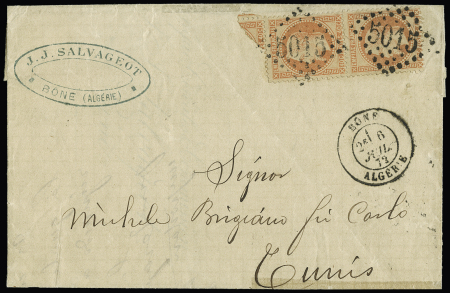 J. J. SALVAGEOT
BONE (ALGÉRIE)
5015
5015
BONE
6
JUIL.
ALGÉRIE
Signor
Michele Brigiano fù Carlo
Tunis